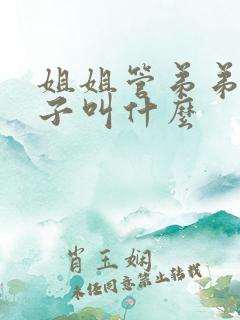 姐姐管弟弟
子叫什麼
肖玉娴
未经同意禁止转载